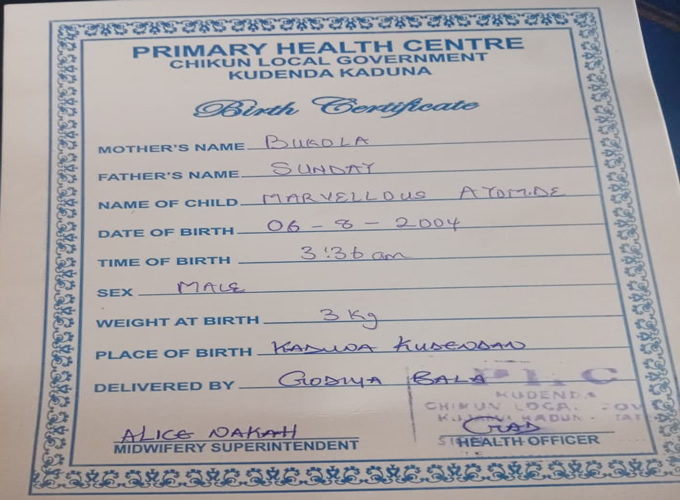 PRIMARY HEALTH CENTRE
CHIKUN LOCAL GOVERNMENT
KUDENDA KADUNA
Birth Certificate
MOTHER'S NAME BUKOLA
FATHER'S NAME SUNDAY
NAME OF CHILD MARVELLOUS AYOMIDE
DATE OF BIRTH 06-8-2004
TIME OF BIRTH 3:36am
SEX MALE
WEIGHT AT BIRTH 3kg
PLACE OF BIRTH KADUNA KUDENDAN
DELIVERED BY GODIYA BALA
PHC
KUDENDA
CHIKUN LOCAL GOV
ALICE NAKAH
MIDWIFERY SUPERINTENDENT
HEALTH OFFICER